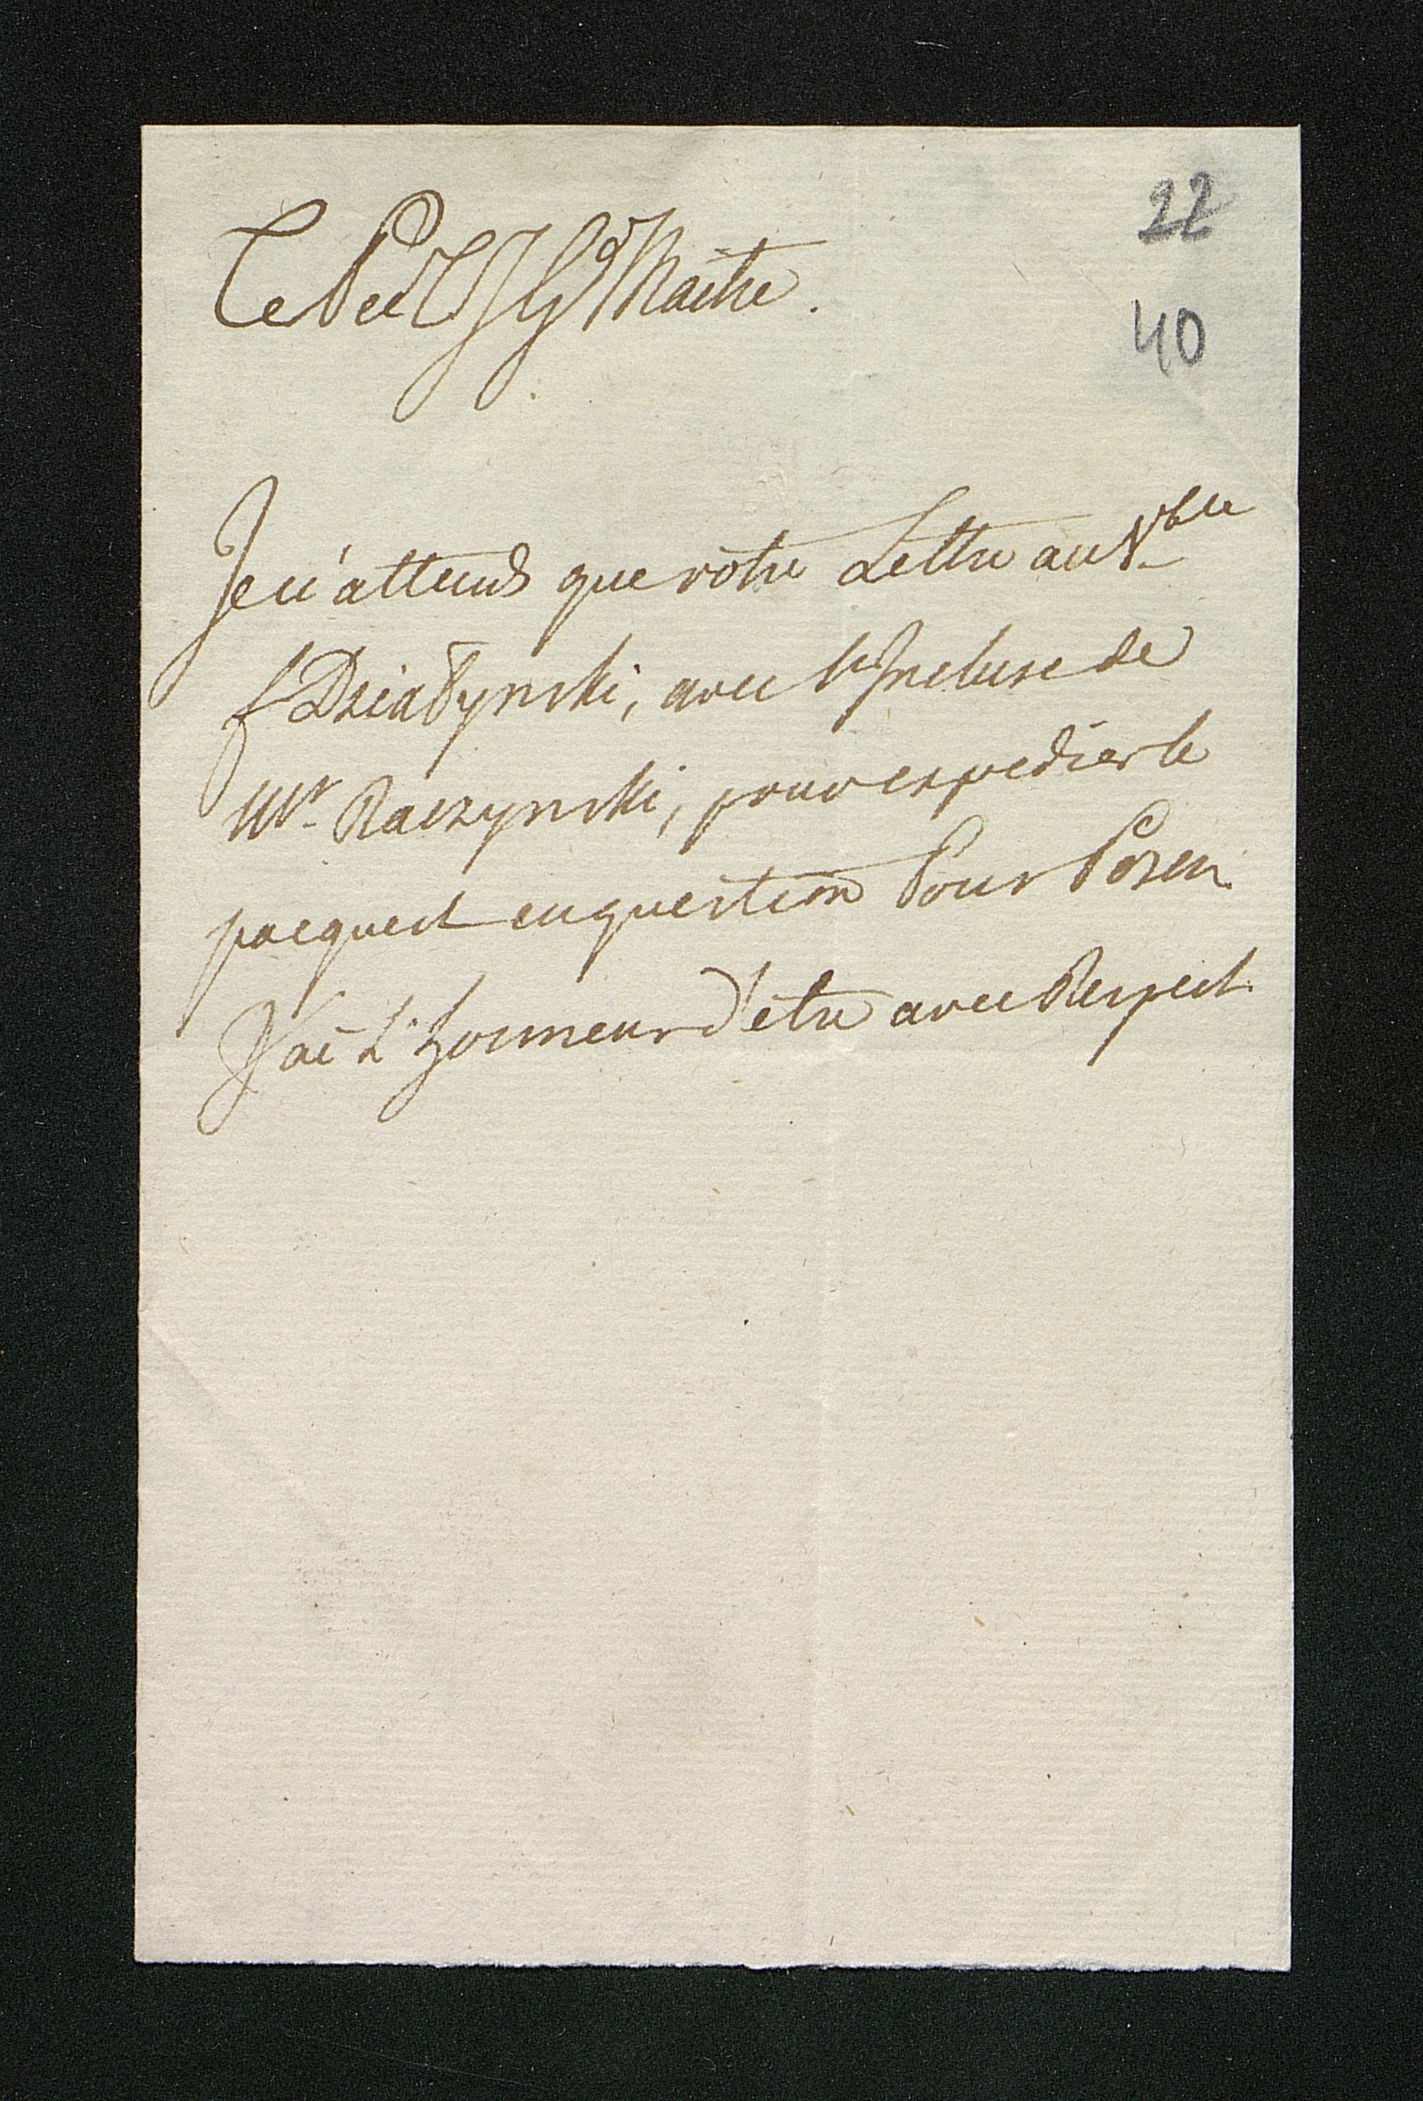 22
Ce Ser Ill G<sup>d</sup> Maitre.
40
Je n'attends que votre Lettre au V<sup>ble</sup>
f Działynski, avec l'Incluse de
M<sup>r</sup> Raczynski, pour expedier le
pacquect en question Pour Posen.
J'ai L'honneur d'etre avec Respect.